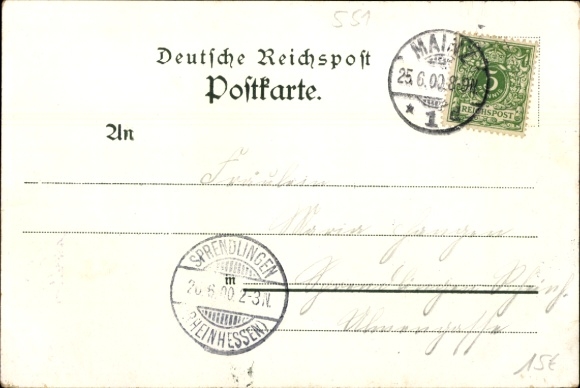 551
Deutsche Reichspost
Postkarte.
MAINZ
25.6.00.8-9N.
* 1
5
REICHSPOST
An
Fräulein
Maria
SPRENDLINGEN
in
26.6.00.2-3N.
(RHEINHESSEN)
Ulmengasse
15€